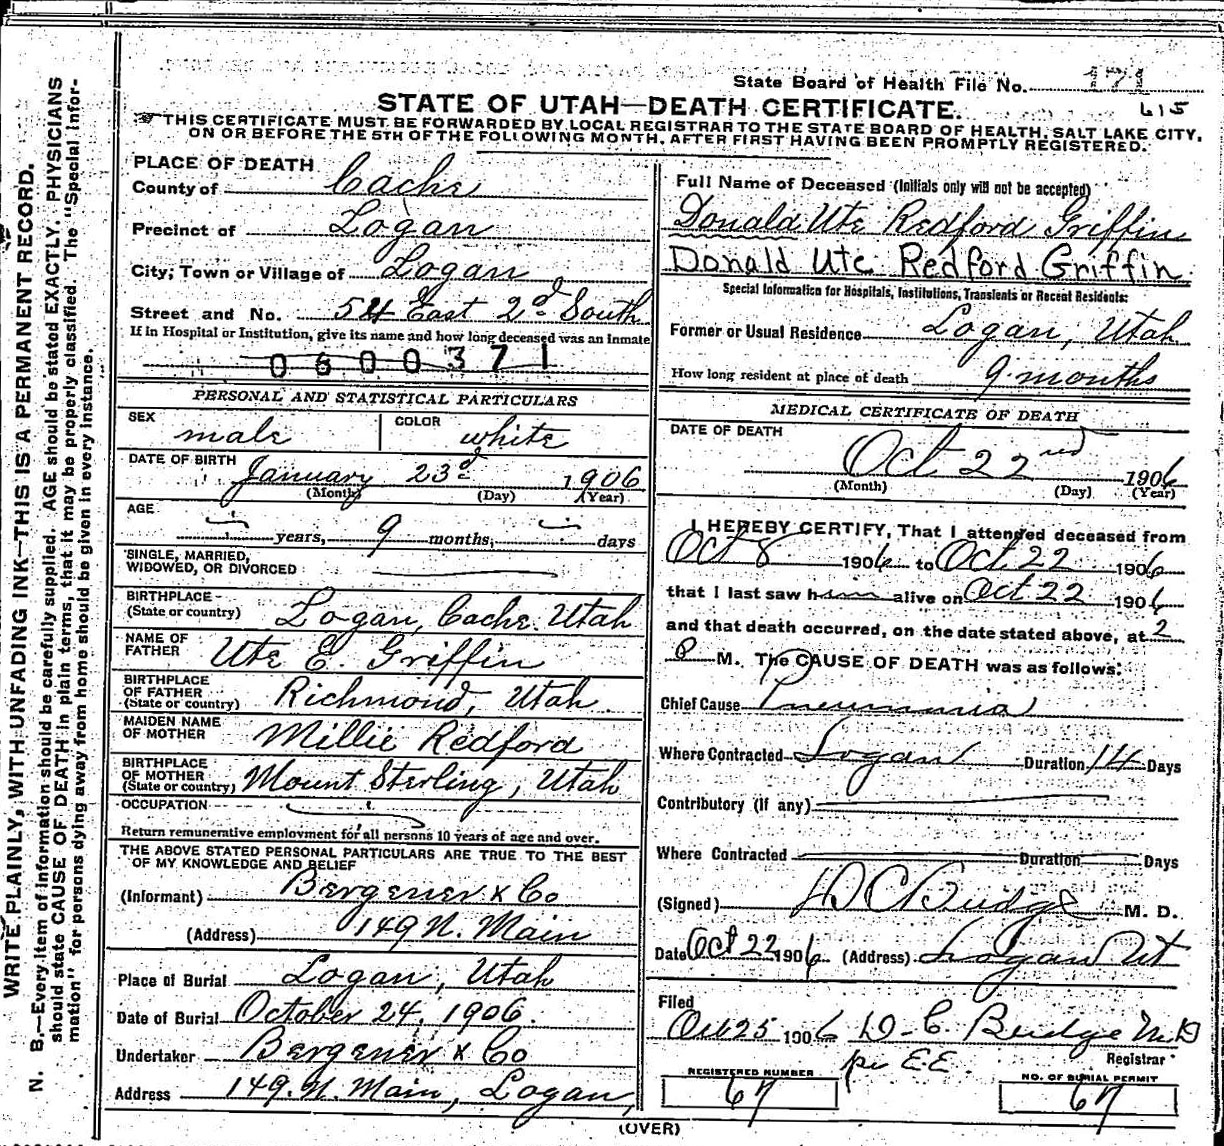 State Board of Health File No. 171
615
STATE OF UTAH—DEATH CERTIFICATE.
THIS CERTIFICATE MUST BE FORWARDED BY LOCAL REGISTRAR TO THE STATE BOARD OF HEALTH, SALT LAKE CITY,
ON OR BEFORE THE 5TH OF THE FOLLOWING MONTH, AFTER FIRST HAVING BEEN PROMPTLY REGISTERED.
WRITE PLAINLY, WITH UNFADING INK—THIS IS A PERMANENT RECORD.
N. B.—Every item of information should be carefully supplied. AGE should be stated EXACTLY. PHYSICIANS
should state CAUSE OF DEATH in plain terms, that it may be properly classified. The "Special Infor-
mation" for persons dying away from home should be given in every instance.
PLACE OF DEATH
County of Cache
Precinct of Logan
City, Town or Village of Logan
Street and No. 54 East 2d South
If in Hospital or Institution, give its name and how long deceased was an Inmate
0600371
PERSONAL AND STATISTICAL PARTICULARS
SEX male COLOR white
DATE OF BIRTH January 23d 1906
(Month) (Day) (Year)
AGE
years, 9 months, days
SINGLE, MARRIED,
WIDOWED, OR DIVORCED
BIRTHPLACE
(State or country) Logan, Cache. Utah
NAME OF
FATHER Ute E. Griffin
BIRTHPLACE
OF FATHER
(State or country) Richmond, Utah
MAIDEN NAME
OF MOTHER Millie Redford
BIRTHPLACE
OF MOTHER
(State or country) Mount Sterling, Utah
OCCUPATION
Return remunerative employment for all persons 10 years of age and over.
THE ABOVE STATED PERSONAL PARTICULARS ARE TRUE TO THE BEST
OF MY KNOWLEDGE AND BELIEF
(Informant) Bergener & Co
(Address) 149 N. Main
Place of Burial Logan, Utah
Date of Burial October 24, 1906.
Undertaker Bergener & Co
Address 149. N. Main, Logan,
Full Name of Deceased (Initials only will not be accepted)
Donald Ute Redford Griffin
Donald Ute Redford Griffin
Special Information for Hospitals, Institutions, Transients or Recent Residents:
Former or Usual Residence Logan, Utah
How long resident at place of death 9 months
MEDICAL CERTIFICATE OF DEATH
DATE OF DEATH
Oct 22nd 1906
(Month) (Day) (Year)
I HEREBY CERTIFY, That I attended deceased from
Oct 8 1906 to Oct 22 1906
that I last saw him alive on Oct 22 1906
and that death occurred, on the date stated above, at 2
P M. The CAUSE OF DEATH was as follows:
Chief Cause Pneumonia
Where Contracted Logan Duration 14 Days
Contributory (If any)
Where Contracted Duration Days
(Signed) D C Budge M. D.
Date Oct 22 1906 (Address) Logan Ut
Filed
Oct 25 1906 D. C. Budge M.D
per E.E. Registrar
REGISTERED NUMBER
67
NO. OF BURIAL PERMIT
67
(OVER)